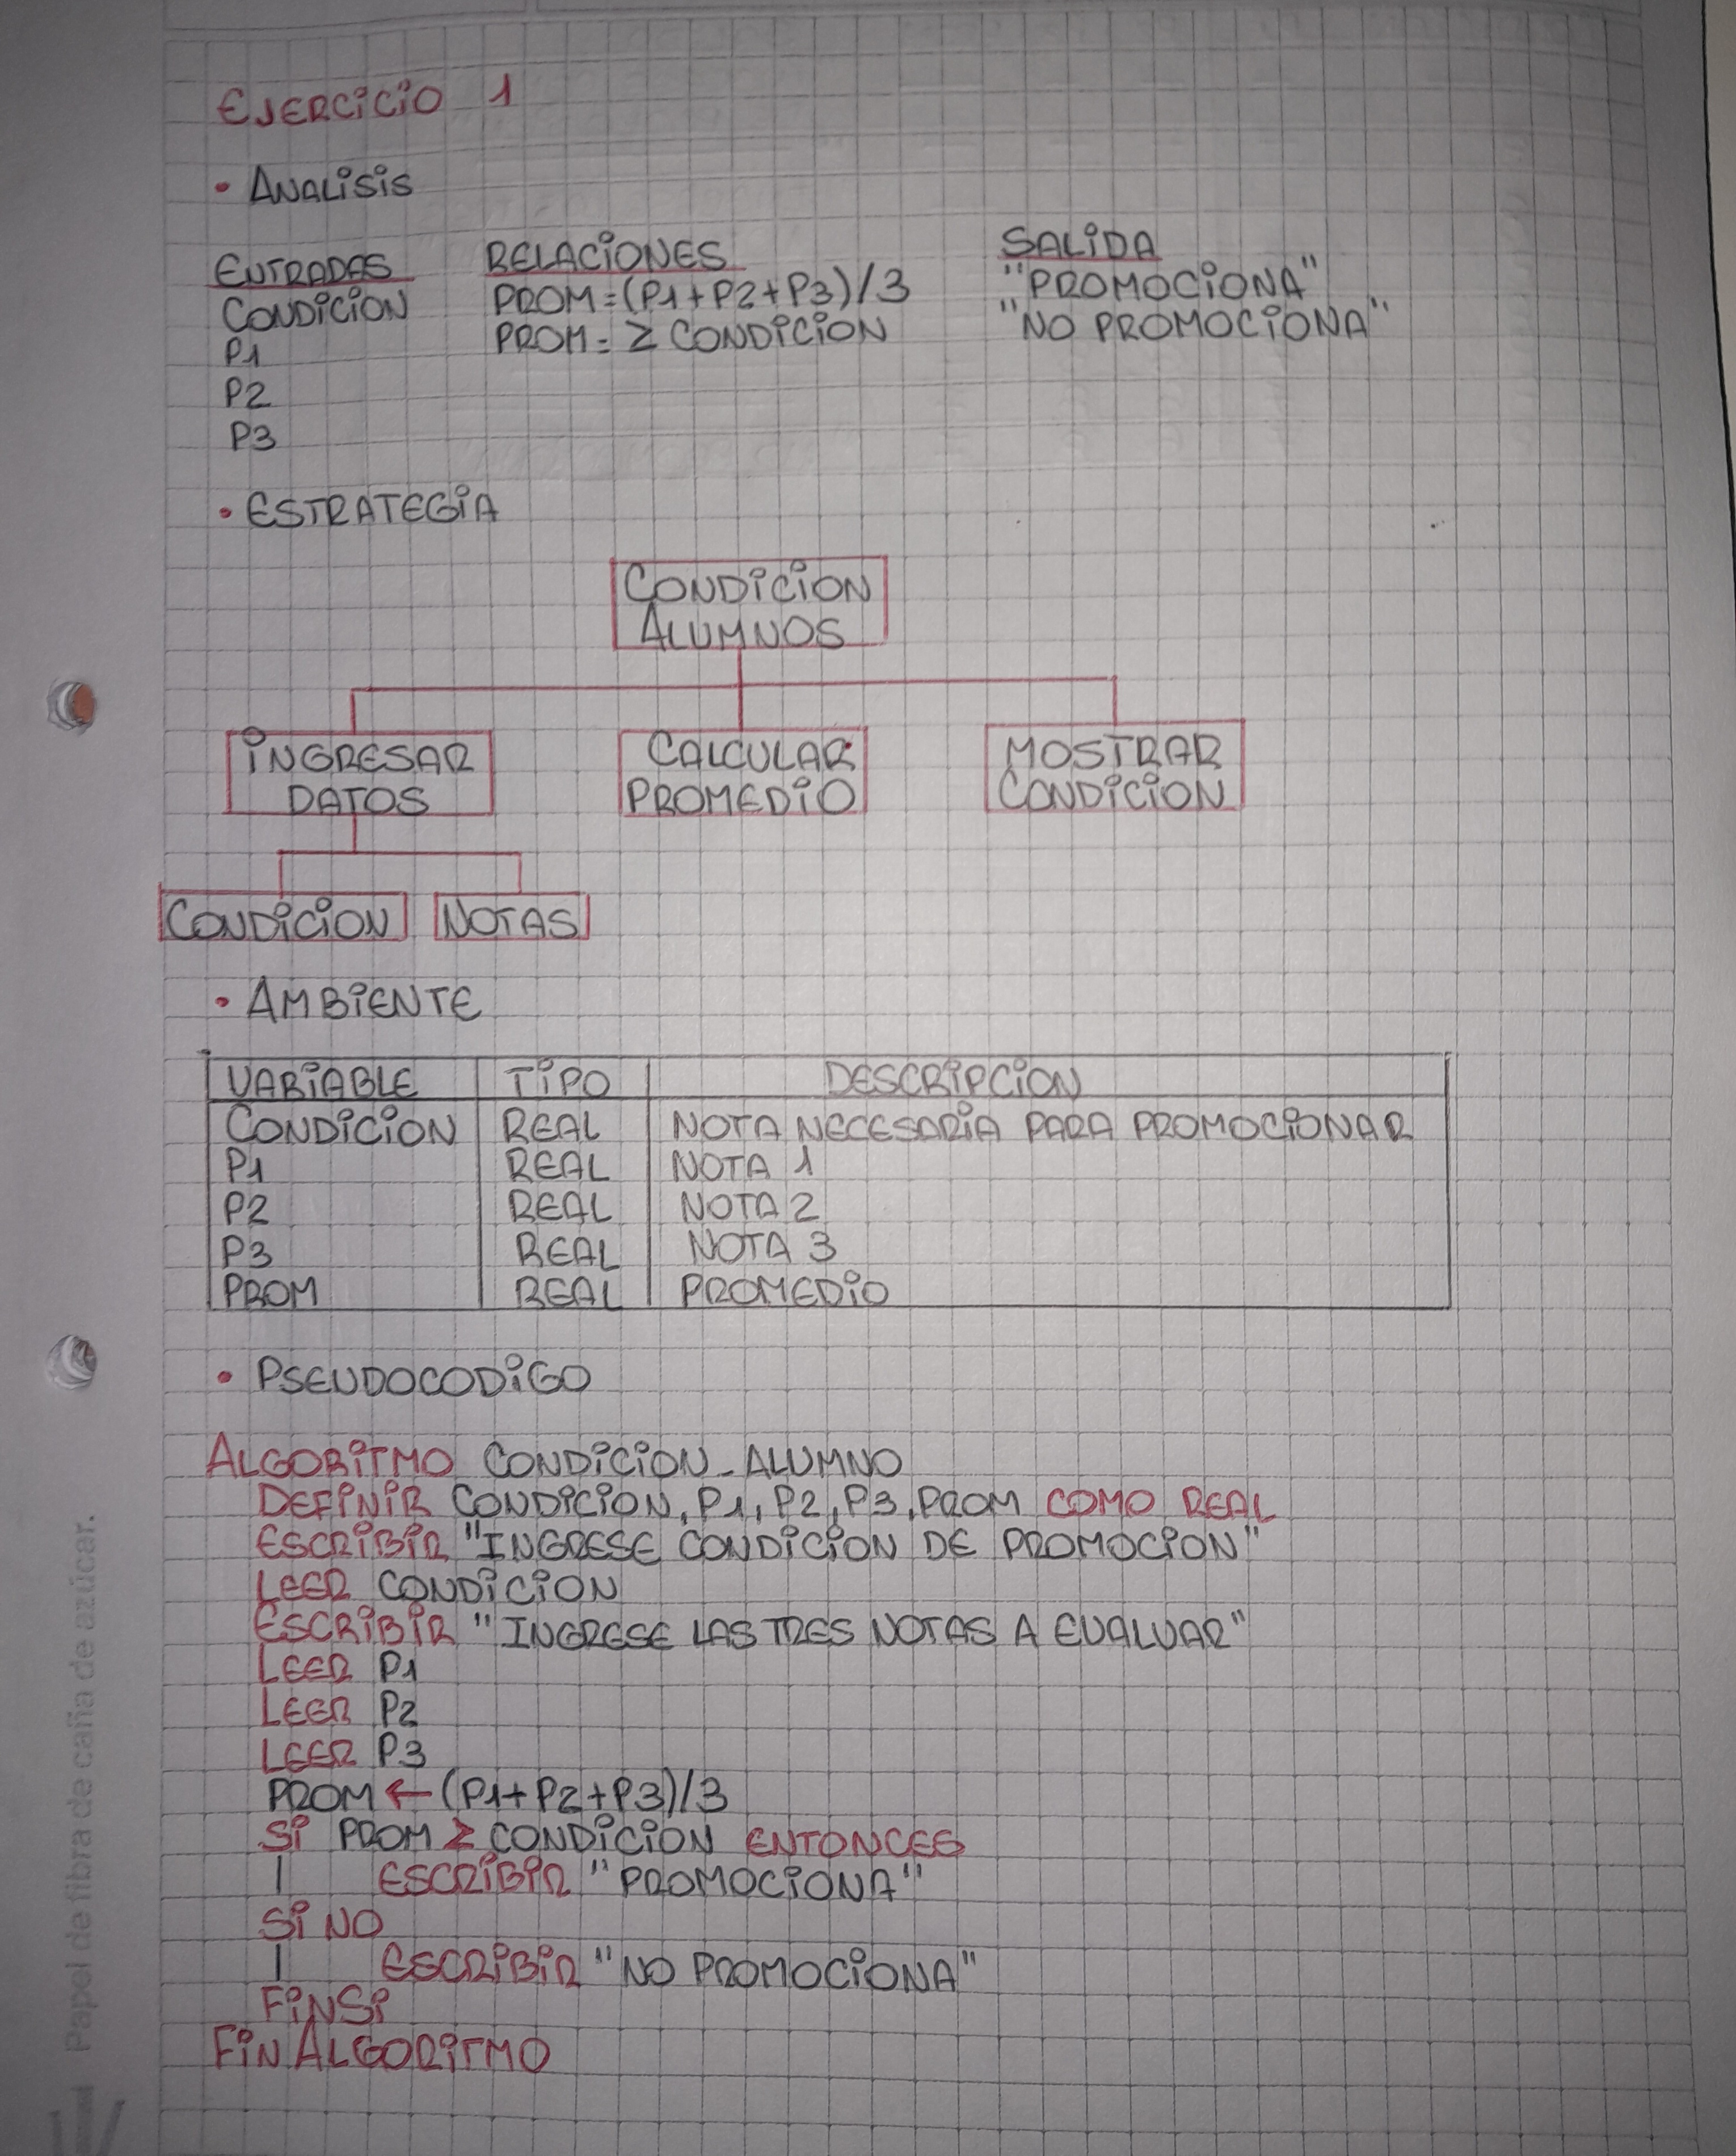 EJERCICIO 1
• ANALISIS
ENTRADAS RELACIONES SALIDA
CONDICION PROM=(P1+P2+P3)/3 "PROMOCIONA"
P1 PROM=≥ CONDICION "NO PROMOCIONA"
P2
P3
• ESTRATEGIA
CONDICION
ALUMNOS
INGRESAR
DATOS
CALCULAR
PROMEDIO
MOSTRAR
CONDICION
CONDICION NOTAS
• AMBIENTE
VARIABLE TIPO DESCRIPCION
CONDICION REAL NOTA NECESARIA PARA PROMOCIONAR
P1 REAL NOTA 1
P2 REAL NOTA 2
P3 REAL NOTA 3
PROM REAL PROMEDIO
• PSEUDOCODIGO
ALGORITMO CONDICION_ALUMNO
DEFINIR CONDICION, P1, P2, P3, PROM COMO REAL
ESCRIBIR "INGRESE CONDICION DE PROMOCION"
LEER CONDICION
ESCRIBIR "INGRESE LAS TRES NOTAS A EVALUAR"
LEER P1
LEER P2
LEER P3
PROM ← (P1+P2+P3)/3
SI PROM ≥ CONDICION ENTONCES
ESCRIBIR "PROMOCIONA"
SI NO
ESCRIBIR "NO PROMOCIONA"
FINSI
FIN ALGORITMO
Papel de fibra de caña de azúcar.